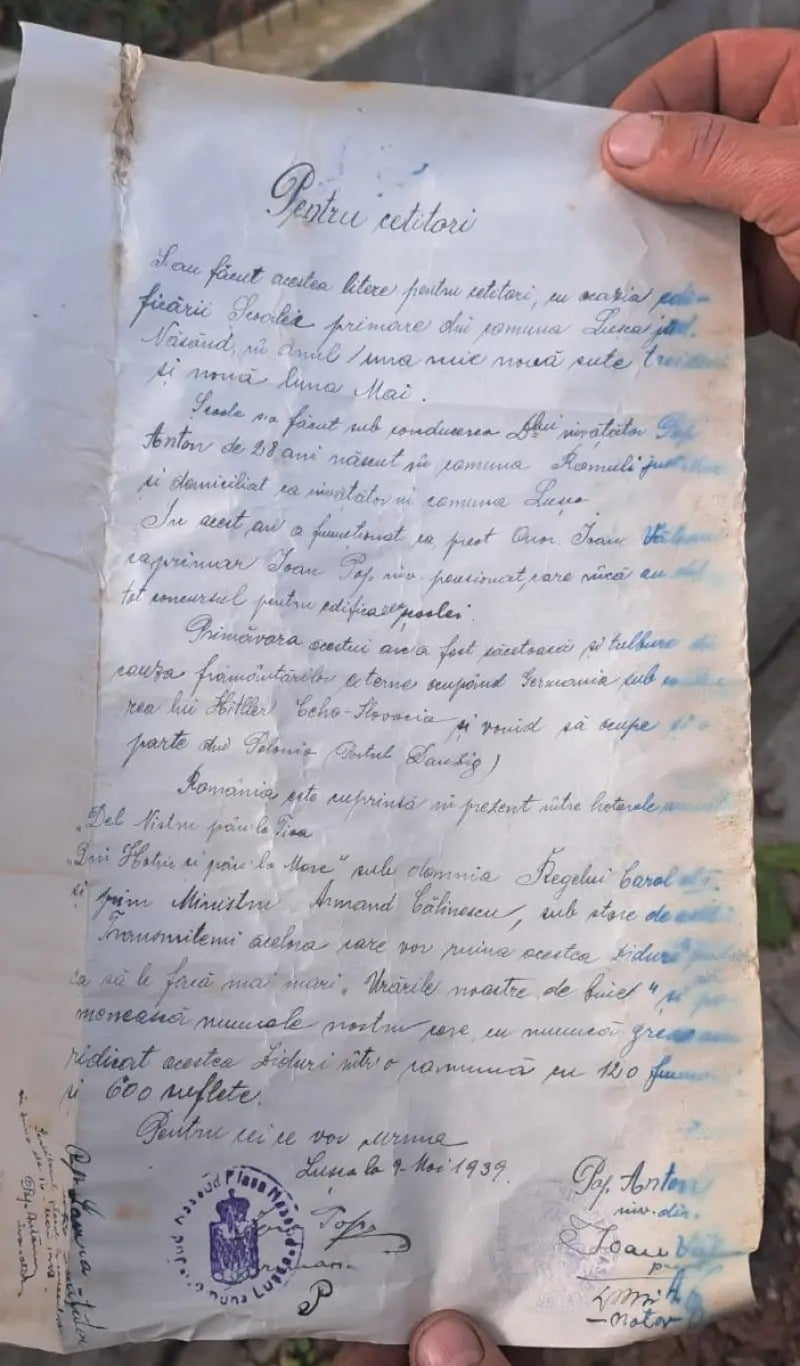 Pentru cetitori
S'au făcut acestea litere pentru cetitori, cu ocazia edi-
ficării Școalei primare din comuna Lușca jud.
Năsăud, în anul una mie nouă sute treizeci
și nouă luna Mai.
Școala s'a făcut sub conducerea Dlui învățător Pop
Anton de 28 ani născut în comuna Romuli jud.
și domiciliat ca învățător în comuna Lușca
În acest an a funcționat ca preot Onor. Ioan
ca primar Ioan Pop, înv. pensionat, care au
tot concursul pentru edificarea școlei.
Primăvara acestui an a fost săcetoasă și tulbure din
cauza frământărilor externe ocupând Germania sub
rea lui Hitller Ceho-Slovacia și voind să ocupe și o
parte din Polonia (Portul Danzig)
România este cuprinsă în prezent între hotarele
"Del Nistru pân' la Tisa
"Din Hotin și pân' la Mare" sub domnia Regelui Carol
și prim Ministru Armand Călinescu, sub stare de
Transmitem acelora care vor ruina acestea ziduri
ca să le facă mai mari "Urările noastre de bine" și po-
menească numele nostru care cu muncă grea am
ridicat acestea ziduri într'o comună cu 120
și 600 suflete.
Pentru cei ce vor urma
Lușca la 9 Mai 1939.
Pop Anton
înv. dir.
Pop
primar
Ioan
Notar